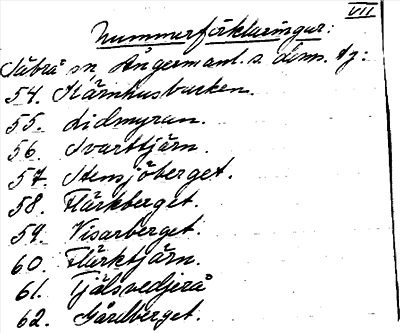 VII
Nummerförklaringar:
Säbrå sn, Ångermanl. s. doms. tg:
54. Kärnhusbacken.
55. Lidmyran.
56. Svarttjärn.
57. Stensjöberget.
58. Flärkberget.
59. Visarberget.
60. Flärktjärn.
61. Tjälsvedjerå
62. Gårdberget.